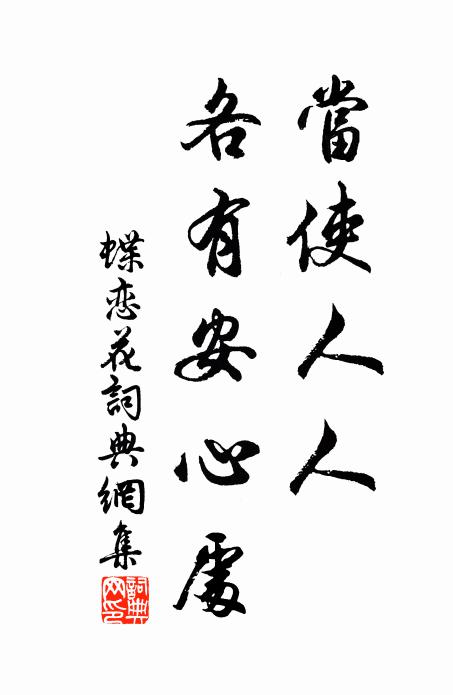 當使人人
各有安心處
蝶恋花詞典網集
詞典網印